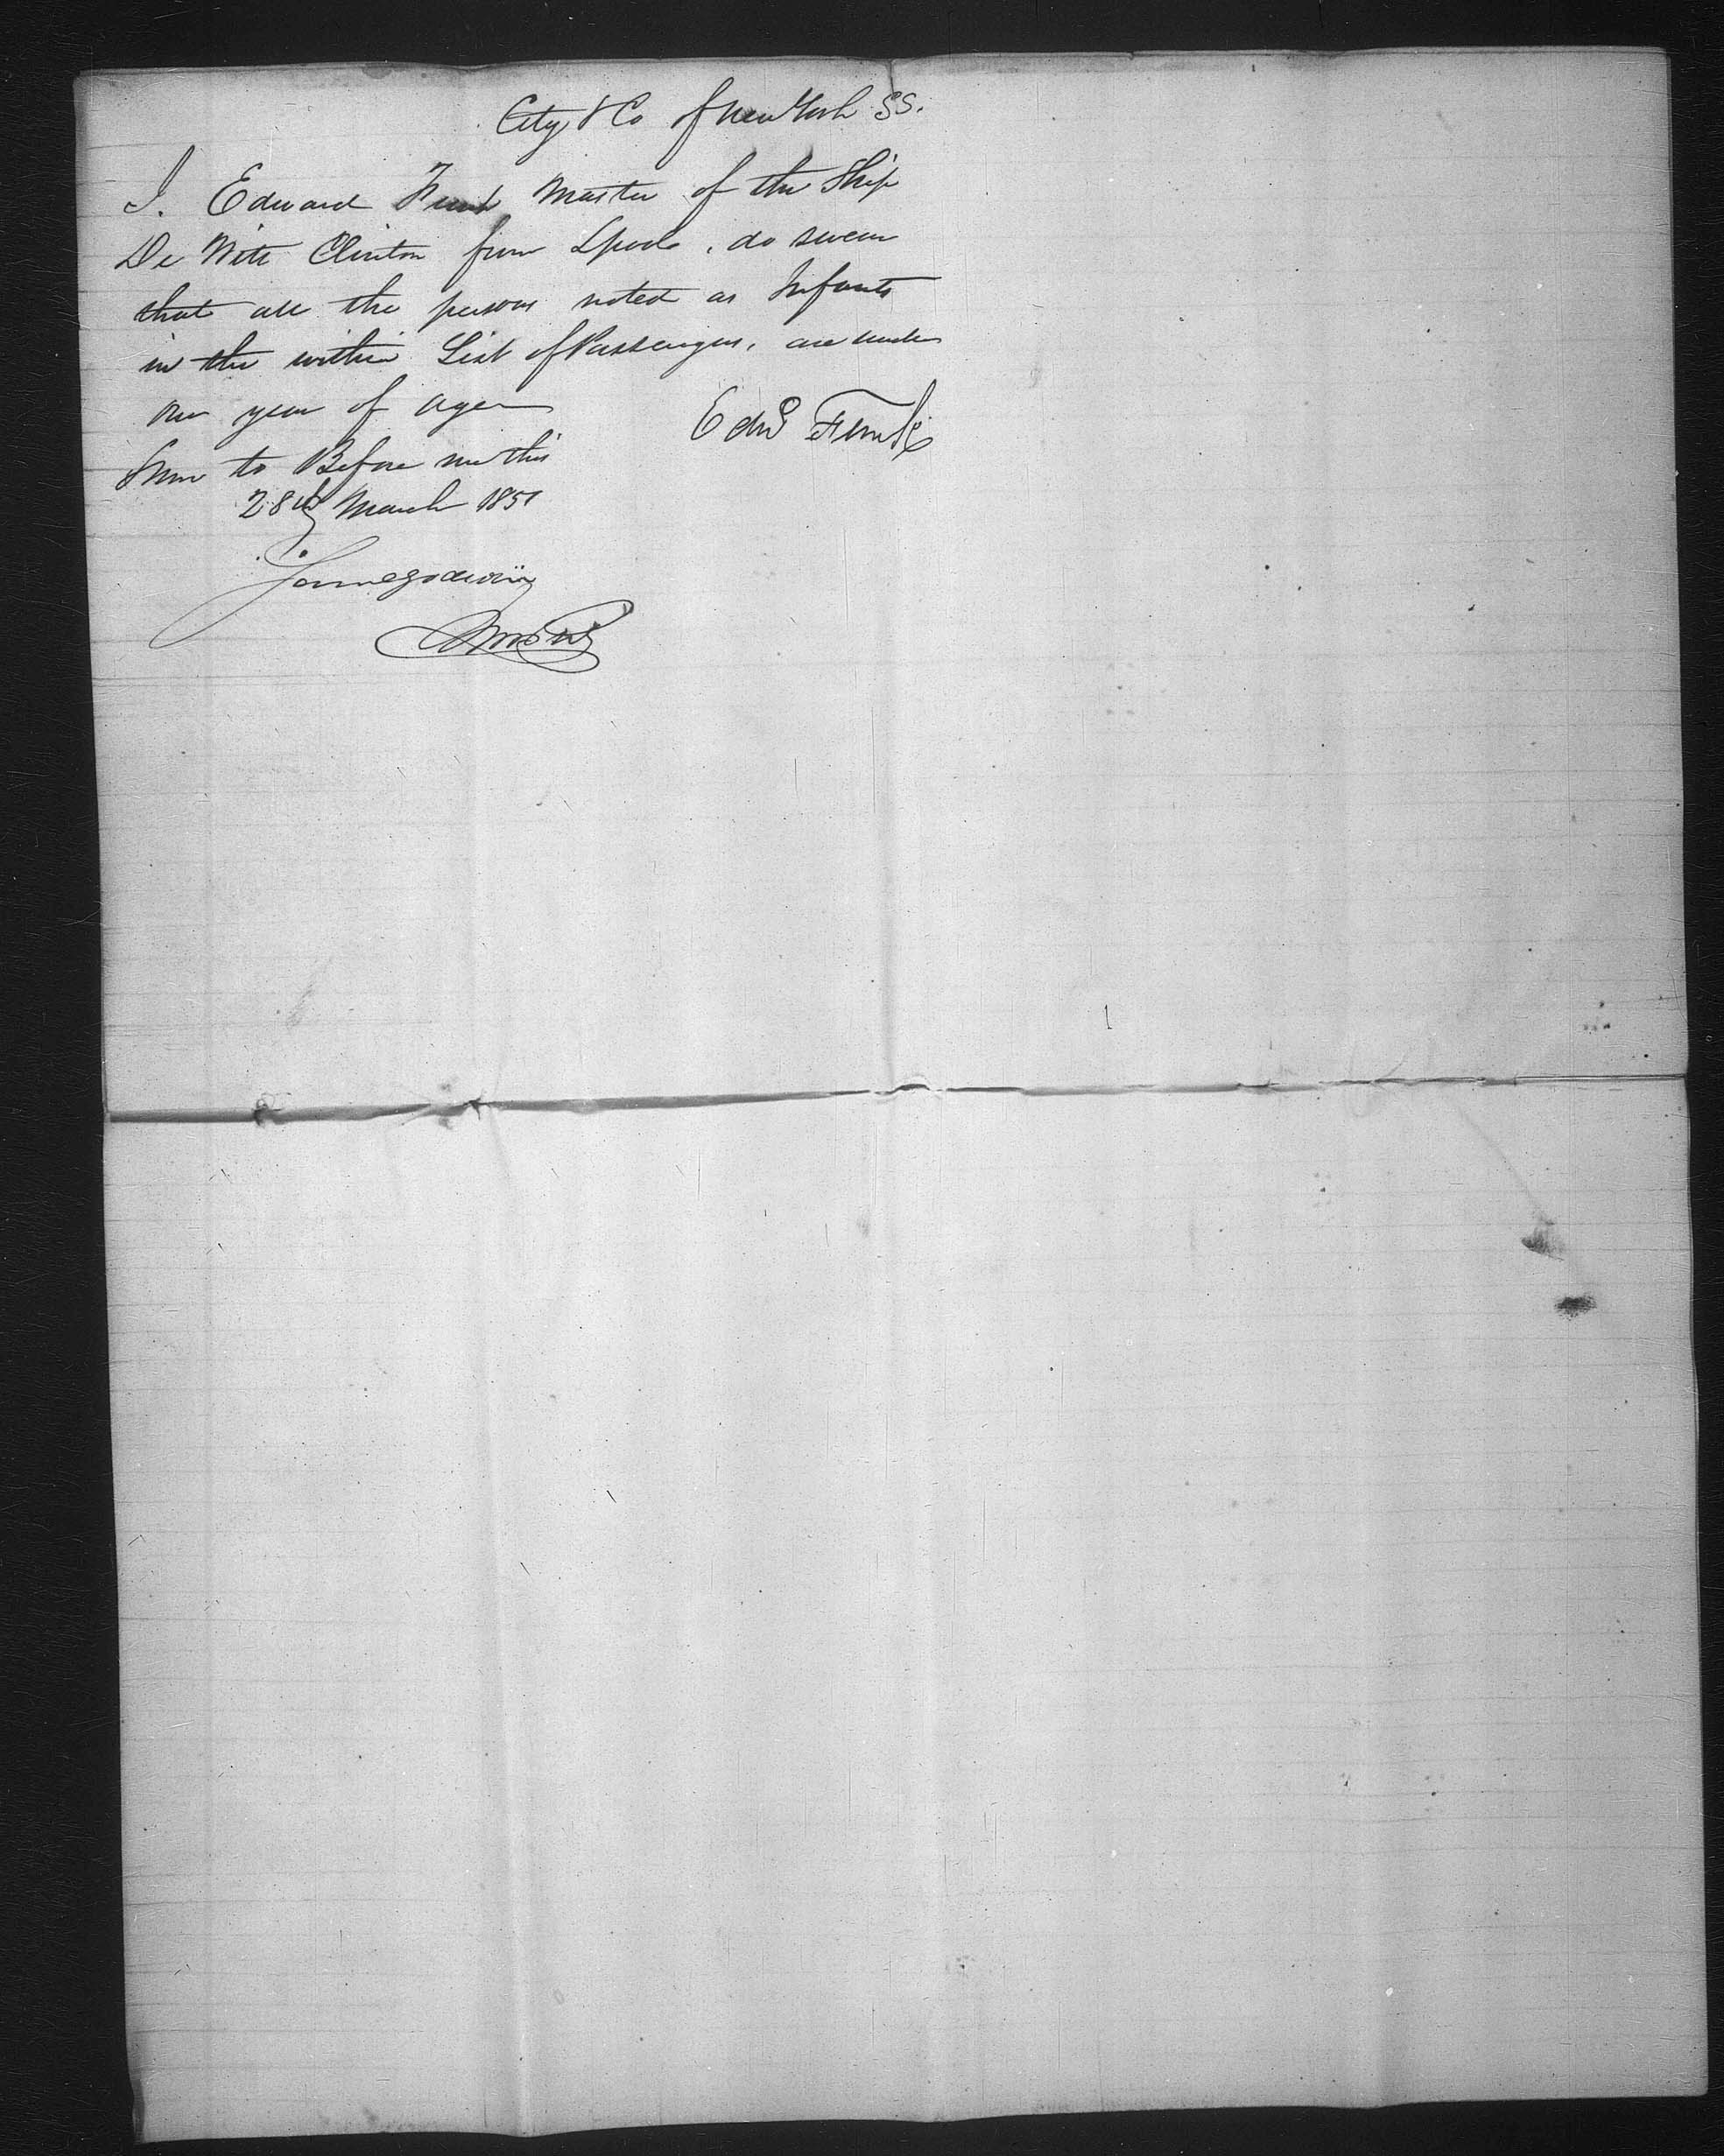 City & Co of New York SS.
I. Edward Funk Master of the Ship
De Witt Clinton from Lpool. do swear
that all the persons noted as Infants
in the within List of Passengers, are under
one year of age
Edwd Funk
Sworn to Before me this
28th March 1851